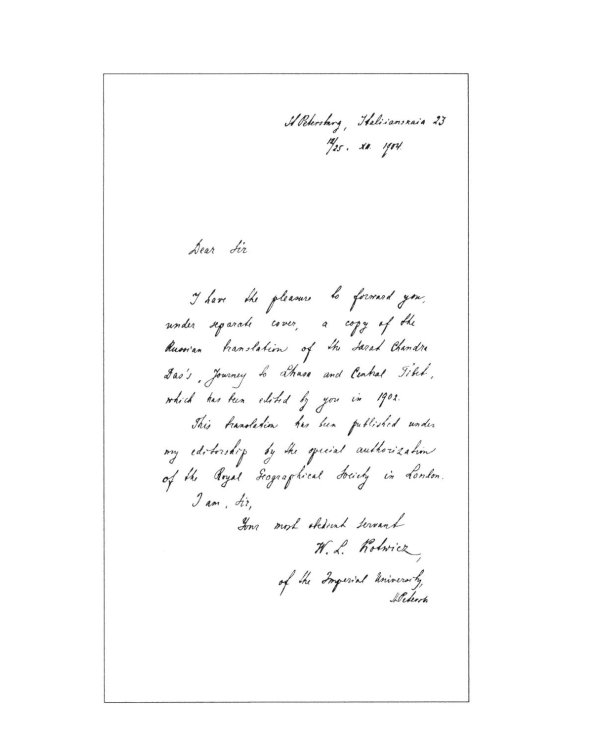 St Petersburg, Italiianskaia 23
12/25. XII. 1904
Dear Sir
I have the pleasure to forward you,
under separate cover, a copy of the
Russian translation of the Sarat Chandra
Das's „Journey to Lhasa and Central Tibet,
which has been edited by you in 1902.
This translation has been published under
my editorship by the special authorization
of the Royal Geographical Society in London.
I am, Sir,
Your most obedient servant
W. L. Kotwicz,
of the Imperial University,
St Petersb